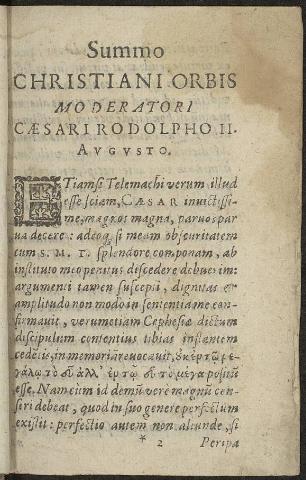 Summo
CHRISTIANI ORBIS
MODERATORI
CÆSARI RODOLPHO II.
AVGVSTO.
ETiamsi Telemachi verum illud
esse sciam, CÆSAR invictissi-
me, magnos magna, paruos par
ua decere: adeoq, si meam obscuritatem
cum S. M. T. splendore componam, ab
instituto me penitus discedere debuerim:
argumenti tamen suscepti, dignitas &
amplitudo non modo in sententia me con-
firmauit, verumetiam Cephesiæ dictum
discipulum contentius tibias instantem
cedetis, in memoriã reuocauit,
esse. Nam cum id demũ vere magnũ cen-
siri debeat, quod in suo genere perfectum
existit: perfectio autem non aliunde, si
* 2 Peripa